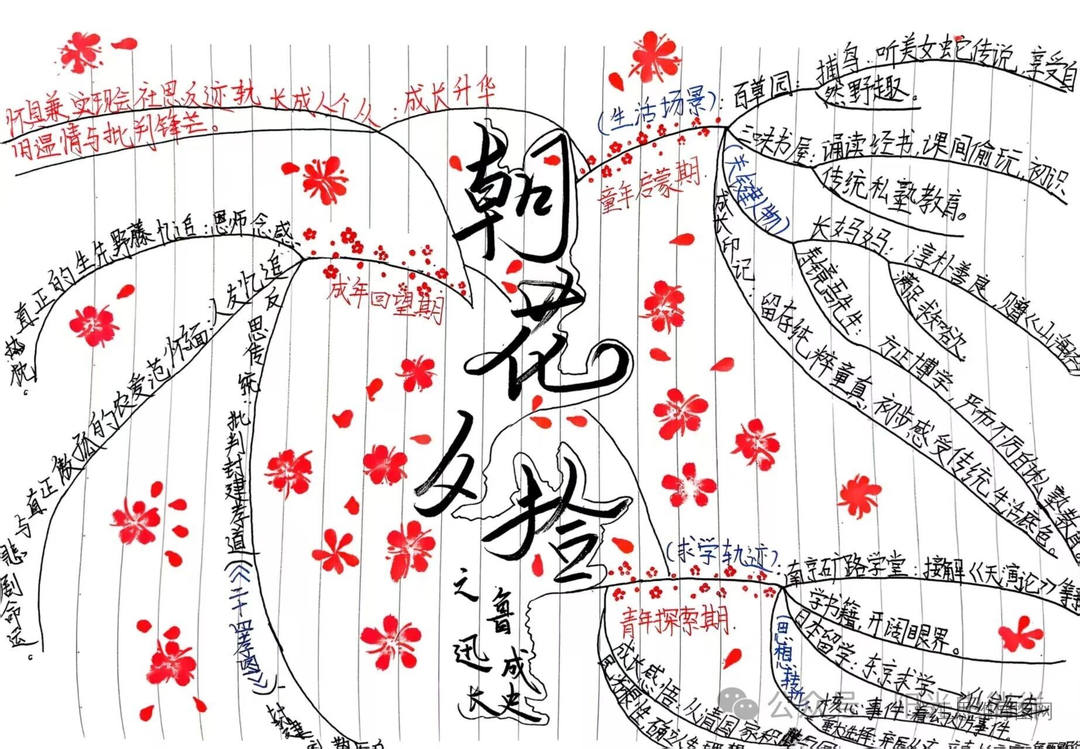 朝花夕拾
之鲁迅成长史
童年启蒙期
(生活场景):百草园:捕鸟、听美女蛇传说,享受自
然野趣。
三味书屋:诵读经书,课间偷玩,初识
传统私塾教育。
(关键人物)
长妈妈:淳朴善良,赠《山海经》
满足求知欲
寿镜吾先生:方正博学,严而不厉
成长印记:留存纯粹童真,初步感受传统生活底色。
青年探索期.
(求学轨迹):南京矿路学堂:接解《天演论》等
学书籍,开阔眼界。
日本留学:东京求学
(思想转折
核心事件:看幻灯片事件
成长感悟:从
成年回望期
感念恩师:追忆藤野先生的真正
热忱。
追忆友人:面怀范爱农的孤傲正真与
悲剧命运。
反思传统:批判封建孝道(《二十四孝图》)
成长升华:从个人成长轨迹反思社会现实,兼具怀
旧温情与批判锋芒。
公众号